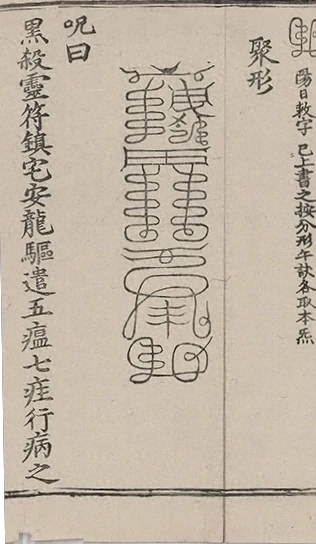 陽日敕字 已上書之按分形午訣各取本炁
聚形
呪曰
黑殺靈符鎮宅安龍驅遣五瘟七疰行病之